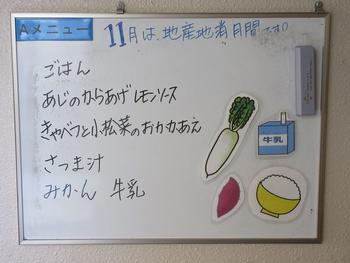 Aメニュー
11月は、地産地消月間です!!
ごはん
あじのからあげ レモンソース
きゃべつと小松菜のおかかあえ
さつま汁
みかん 牛乳
牛乳